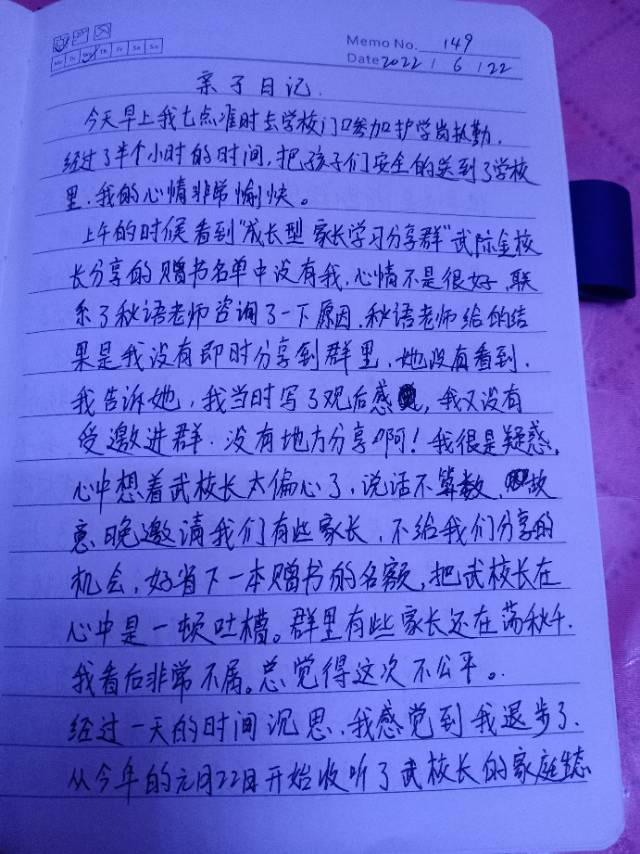 Memo No. 149
Mo Tu We Th Fr Sa Su
Date 2022 / 6 / 22
亲子日记.
今天早上我七点准时去学校门口参加护学岗执勤,
经过了半个小时的时间,把孩子们安全的送到了学校
里,我的心情非常愉快。
上午的时候看到"成长型家长学习分享群"武际金校
长分享的赠书名单中没有我,心情不是很好,联
系了秋语老师咨询了一下原因,秋语老师给的结
果是我没有即时分享到群里,她没有看到.
我告诉她,我当时写了观后感,我又没有
受邀进群.没有地方分享啊!我很是疑惑,
心中想着武校长太偏心了,说话不算数,故
意晚邀请我们有些家长,不给我们分享的
机会,好省下一本赠书的名额,把武校长在
心中是一顿吐槽。群里有些家长还在荡秋千.
我看后非常不属。总觉得这次不公平。
经过一天的时间沉思,我感觉到我退步了.
从今年的元月22日开始收听了武校长的家庭生态